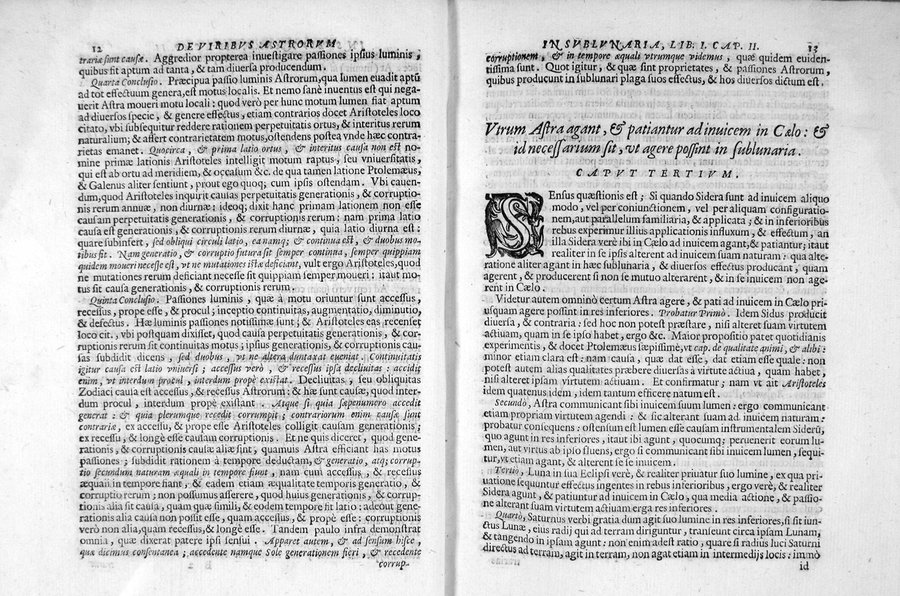 12 DE VIRIBVS ASTRORVM
trariæ sunt causæ. Aggredior propterea inuestigare passiones ipsius luminis,
quibus sit aptum ad tanta, & tam diuersa producendum.
Quarta Conclusio. Præcipua passio luminis Astrorum, qua lumen euadit aptũ
ad tot effectuum genera, est motus localis. Et nemo sanè inuentus est qui negauerit
Astra moueri motu locali: quod verò per hunc motum lumen fiat aptum
ad diuersos specie, & genere effectus, etiam contrarios docet Aristoteles loco
citato, vbi subsequitur reddere rationem perpetuitatis ortus, & interitus rerum
naturalium, & affert contrarietatem motus, ostendens postea vnde hæc contrarietas
emanet. Quocirca, & prima latio ortus, & interitus causa non est: nomine
primæ lationis Aristoteles intelligit motum raptus, seu vniuersitatis,
qui est ab ortu ad meridiem, & occasum &c. de qua tamen latione Ptolemæus,
& Galenus aliter sentiunt, prout ego quoq; cum ipsis ostendam. Vbi cauendum,
quod Aristoteles inquirit causas perpetuitatis generationis, & corruptionis
rerum annuæ, non diurnæ: ideoq; dixit hanc primam lationem non esse
causam perpetuatis generationis, & corruptionis rerum: nam prima latio
causa est generationis, & corruptionis rerum diurnæ, quia latio diurna est:
quare subinfert, sed obliqui circuli latio, ea namq; & continua est, & duobus motibus
fit. Nam generatio, & corruptio futura sit semper continua, semper quippiam
quidem moueri necesse est, vt ne mutationes istæ deficiant, vult ergo Aristoteles, quod
ne mutationes rerum deficiant necesse sit quippiam semper moueri: itaut motus
sit causa generationis, & corruptionis rerum.
Quinta Conclusio. Passiones luminis, quæ à motu oriuntur sunt accessus,
recessus, prope esse, & procul; inceptio continuitas, augmentatio, diminutio,
& defectus. Hæ luminis passiones notissimæ sunt; & Aristoteles eas recenset
loco cit. vbi postquam dixisset, quod causa perpetuitatis generationis, & corruptionis
rerum sit continuitas motus; ipsius generationis, & corruptionis causas
subdidit dicens, sed duobus, vt ne altera duntaxat eueniat. Continuitatis
igitur causa est latio vniuersi; accessus verò, & recessus ipsa decliuitas: accidit
enim, vt interdum procul, interdum propè existat. Decliuitas, seu obliquitas
Zodiaci causa est accessus, & recessus Astrorum: & hæ sunt causæ, quod interdum
procul, interdum propè existant. Atque si quia sapenumerò accedit
generat: & quia plerumque recedit corrumpit; contrariorum enim causæ sunt
contrariæ, ex accessu, & prope esse Aristoteles colligit causam generationis;
ex recessu, & longè esse causam corruptionis. Et ne quis diceret, quod generationis,
& corruptionis causæ aliæ sint, quamuis Astra efficiant has motus
passiones; subdidit rationem à tempore deductam, & generatio, atq; corruptio
secundum naturam æquali in tempore fiunt, nam cum accessus, & recessus
æquali in tempore fiant, & eadem etiam æqualitate temporis generatio, &
corruptio rerum; non possumus asserere, quod huius generationis, & corruptionis
alia sit causa, quam quæ simili, & eodem tempore fit latio: adeout generationis
causa alia non possit esse, quam accessus, & propè esse: corruptionis
verò non alia, quam recessus, & longè esse. Tandem paulo infra demonstrat
omnia, quæ dixerat patere ipsi sensui. Apparet autem, & ad sensum hisce,
quæ dicimus consentanea; accedente namque Sole generationem fieri, & recedente
corrup-
IN SVBLVNARIA, LIB. I. CAP. II. 13
corruptionem, & in tempore æquali vtrumque videmus, quæ quidem euidentissima
sunt. Quot igitur, & quæ sint proprietates, & passiones Astrorum,
quibus producunt in sublunari plaga suos effectus, & hos diuersos dictum est.
Vtrum Astra agant, & patiantur ad inuicem in Cælo: &
id necessarium sit, vt agere possint in sublunaria.
CAPVT TERTIVM.
SEnsus quæstionis est; Si quando Sidera sunt ad inuicem aliquo
modo, vel per coniunctionem, vel per aliquam configurationem,
aut parallelum familiaria, & applicata; & in inferioribus
rebus experimur illius applicationis influxum, & effectum, an
illa Sidera verè ibi in Cælo ad inuicem agant; & patiantur; itaut
realiter in se ipsis alterent ad inuicem suam naturam: qua alteratione
aliter agant in hæc sublunaria, & diuersos effectus producant, quam
agerent, & producerent si non se mutuo alterarent, & in se inuicem non agerent
in Cælo.
Videtur autem omninò certum Astra agere, & pati ad inuicem in Cælo priusquam
agere possint in res inferiores. Probatur Primò. Idem Sidus producit
diuersa, & contraria: sed hoc non potest præstare, nisi alteret suam virtutem
actiuam, quam in se ipso habet, ergo &c. Maior propositio patet quotidianis
experimentis, & docet Ptolemæus sæpissimè, vt cap. de qualitate animi, & alibi:
minor etiam clara est: nam causa, quæ dat esse, dat etiam esse quale: non
potest autem alias qualitates præbere diuersas à virtute actiua, quam habet,
nisi alteret ipsam virtutem actiuam. Et confirmatur; nam vt ait Aristoteles
idem quatenus idem, idem tantum efficere natum est.
Secundò, Astra communicant sibi inuicem suum lumen: ergo communicant
etiam propriam virtutem agendi: & sic alterant suam ad inuicem naturam:
probatur consequens: ostensum est lumen esse causam instrumentalem Siderũ,
quo agunt in res inferiores, itaut ibi agunt, quocumq; peruenerit eorum lumen,
aut virtus ab ipso fluens, ergo si communicant sibi inuicem lumen, sequitur,
vt etiam agant, & alterent se inuicem.
Tertiò, Luna in sua Eclipsi verè, & realiter priuatur suo lumine, ex qua priuatione
sequuntur effectus ingentes in rebus inferioribus, ergo verè, & realiter
Sidera agunt, & patiuntur ad inuicem in Cælo, qua media actione, & passione
alterant suam virtutem actiuam erga res inferiores.
Quartò, Saturnus verbi gratia dum agit suo lumine in res inferiores, si sit iunctus
Lunæ, eius radij qui ad terram diriguntur, transeunt circa ipsam Lunam,
& tangendo in ipsam agunt: non enim adest ratio, quare si radius luci Saturni
directus ad terram, agit in terram, non agat etiam in intermedijs locis: immò
id